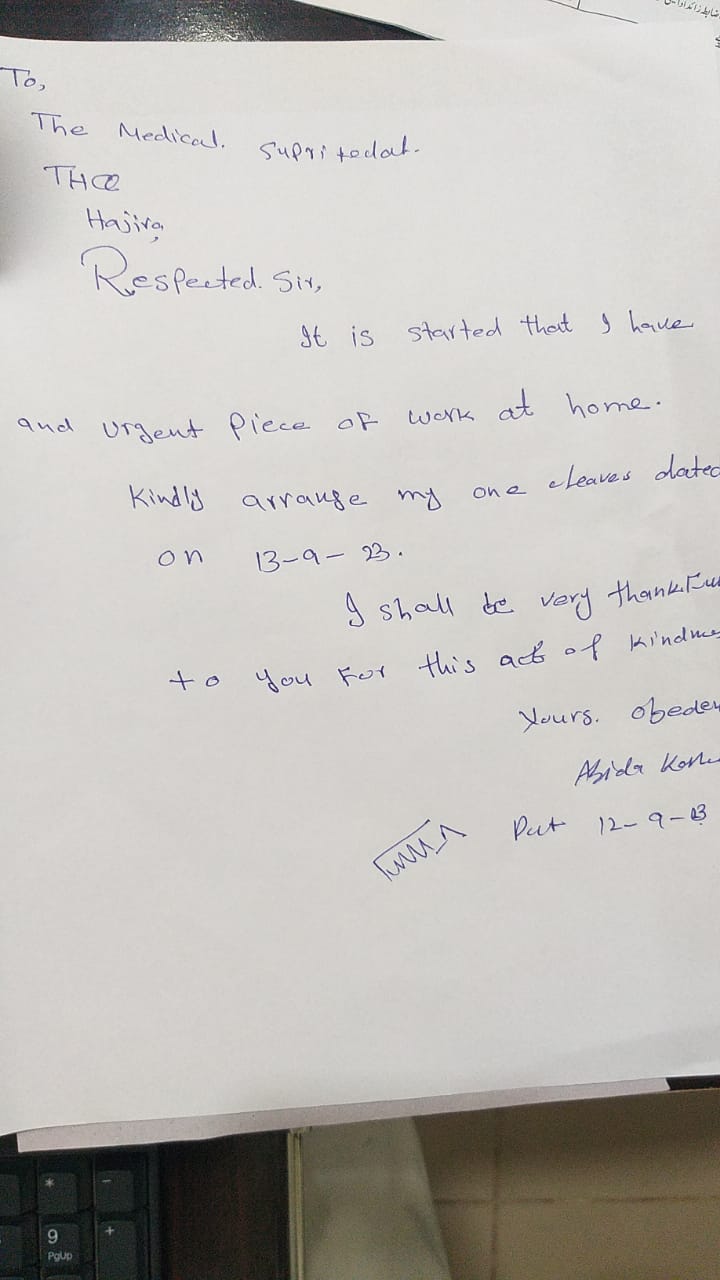 To,
The Medical. Supritedat.
THQ
Hajira,
Respected. Sir,
It is started that I have
and urgent Piece of work at home.
Kindly arrange my one cleaves dated
on 13-9-23.
I shall be very thankful
to you For this act of kindnes
Yours. obeden
Abida
Dat 12-9-23
*
-
9
PgUp
+